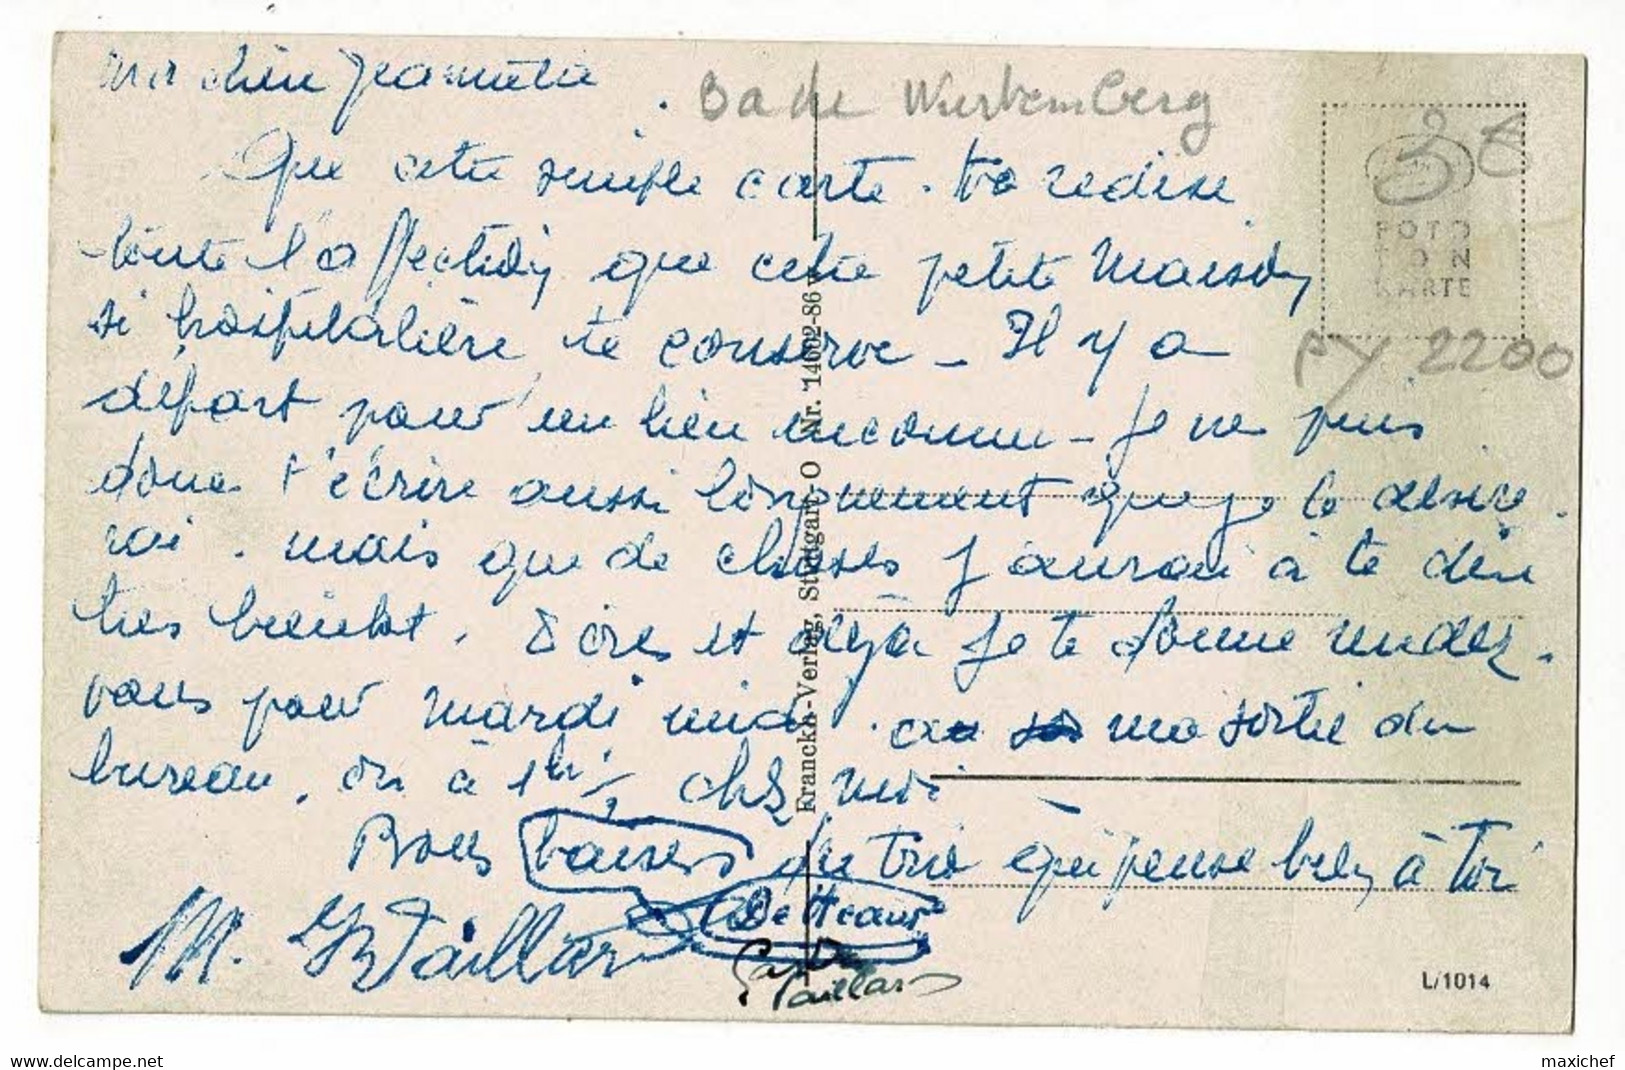 Ma chère Jeannette
Bade Wurtemberg
Que cette simple carte te redise
toute l'affection que cette petite maison
si hospitalière te conserve - Il y a
départ pour un lieu inconnu - Je ne puis
donc t'écrire aussi longuement que je le désire
rai. mais que de choses j'aurai à te dire
très bientôt. et déjà je te donne rendez-
vous pour mardi midi à ma sortie du
bureau, ou à 1h chez moi
Bons baisers du trio qui pense bien à toi
M. Taillar
Taillar
FOTO
TON
KARTE
PY 2200
Franckh-Verlag, Stuttgart-O Nr. 14602-86
L/1014
Delcampe.net
maxichef